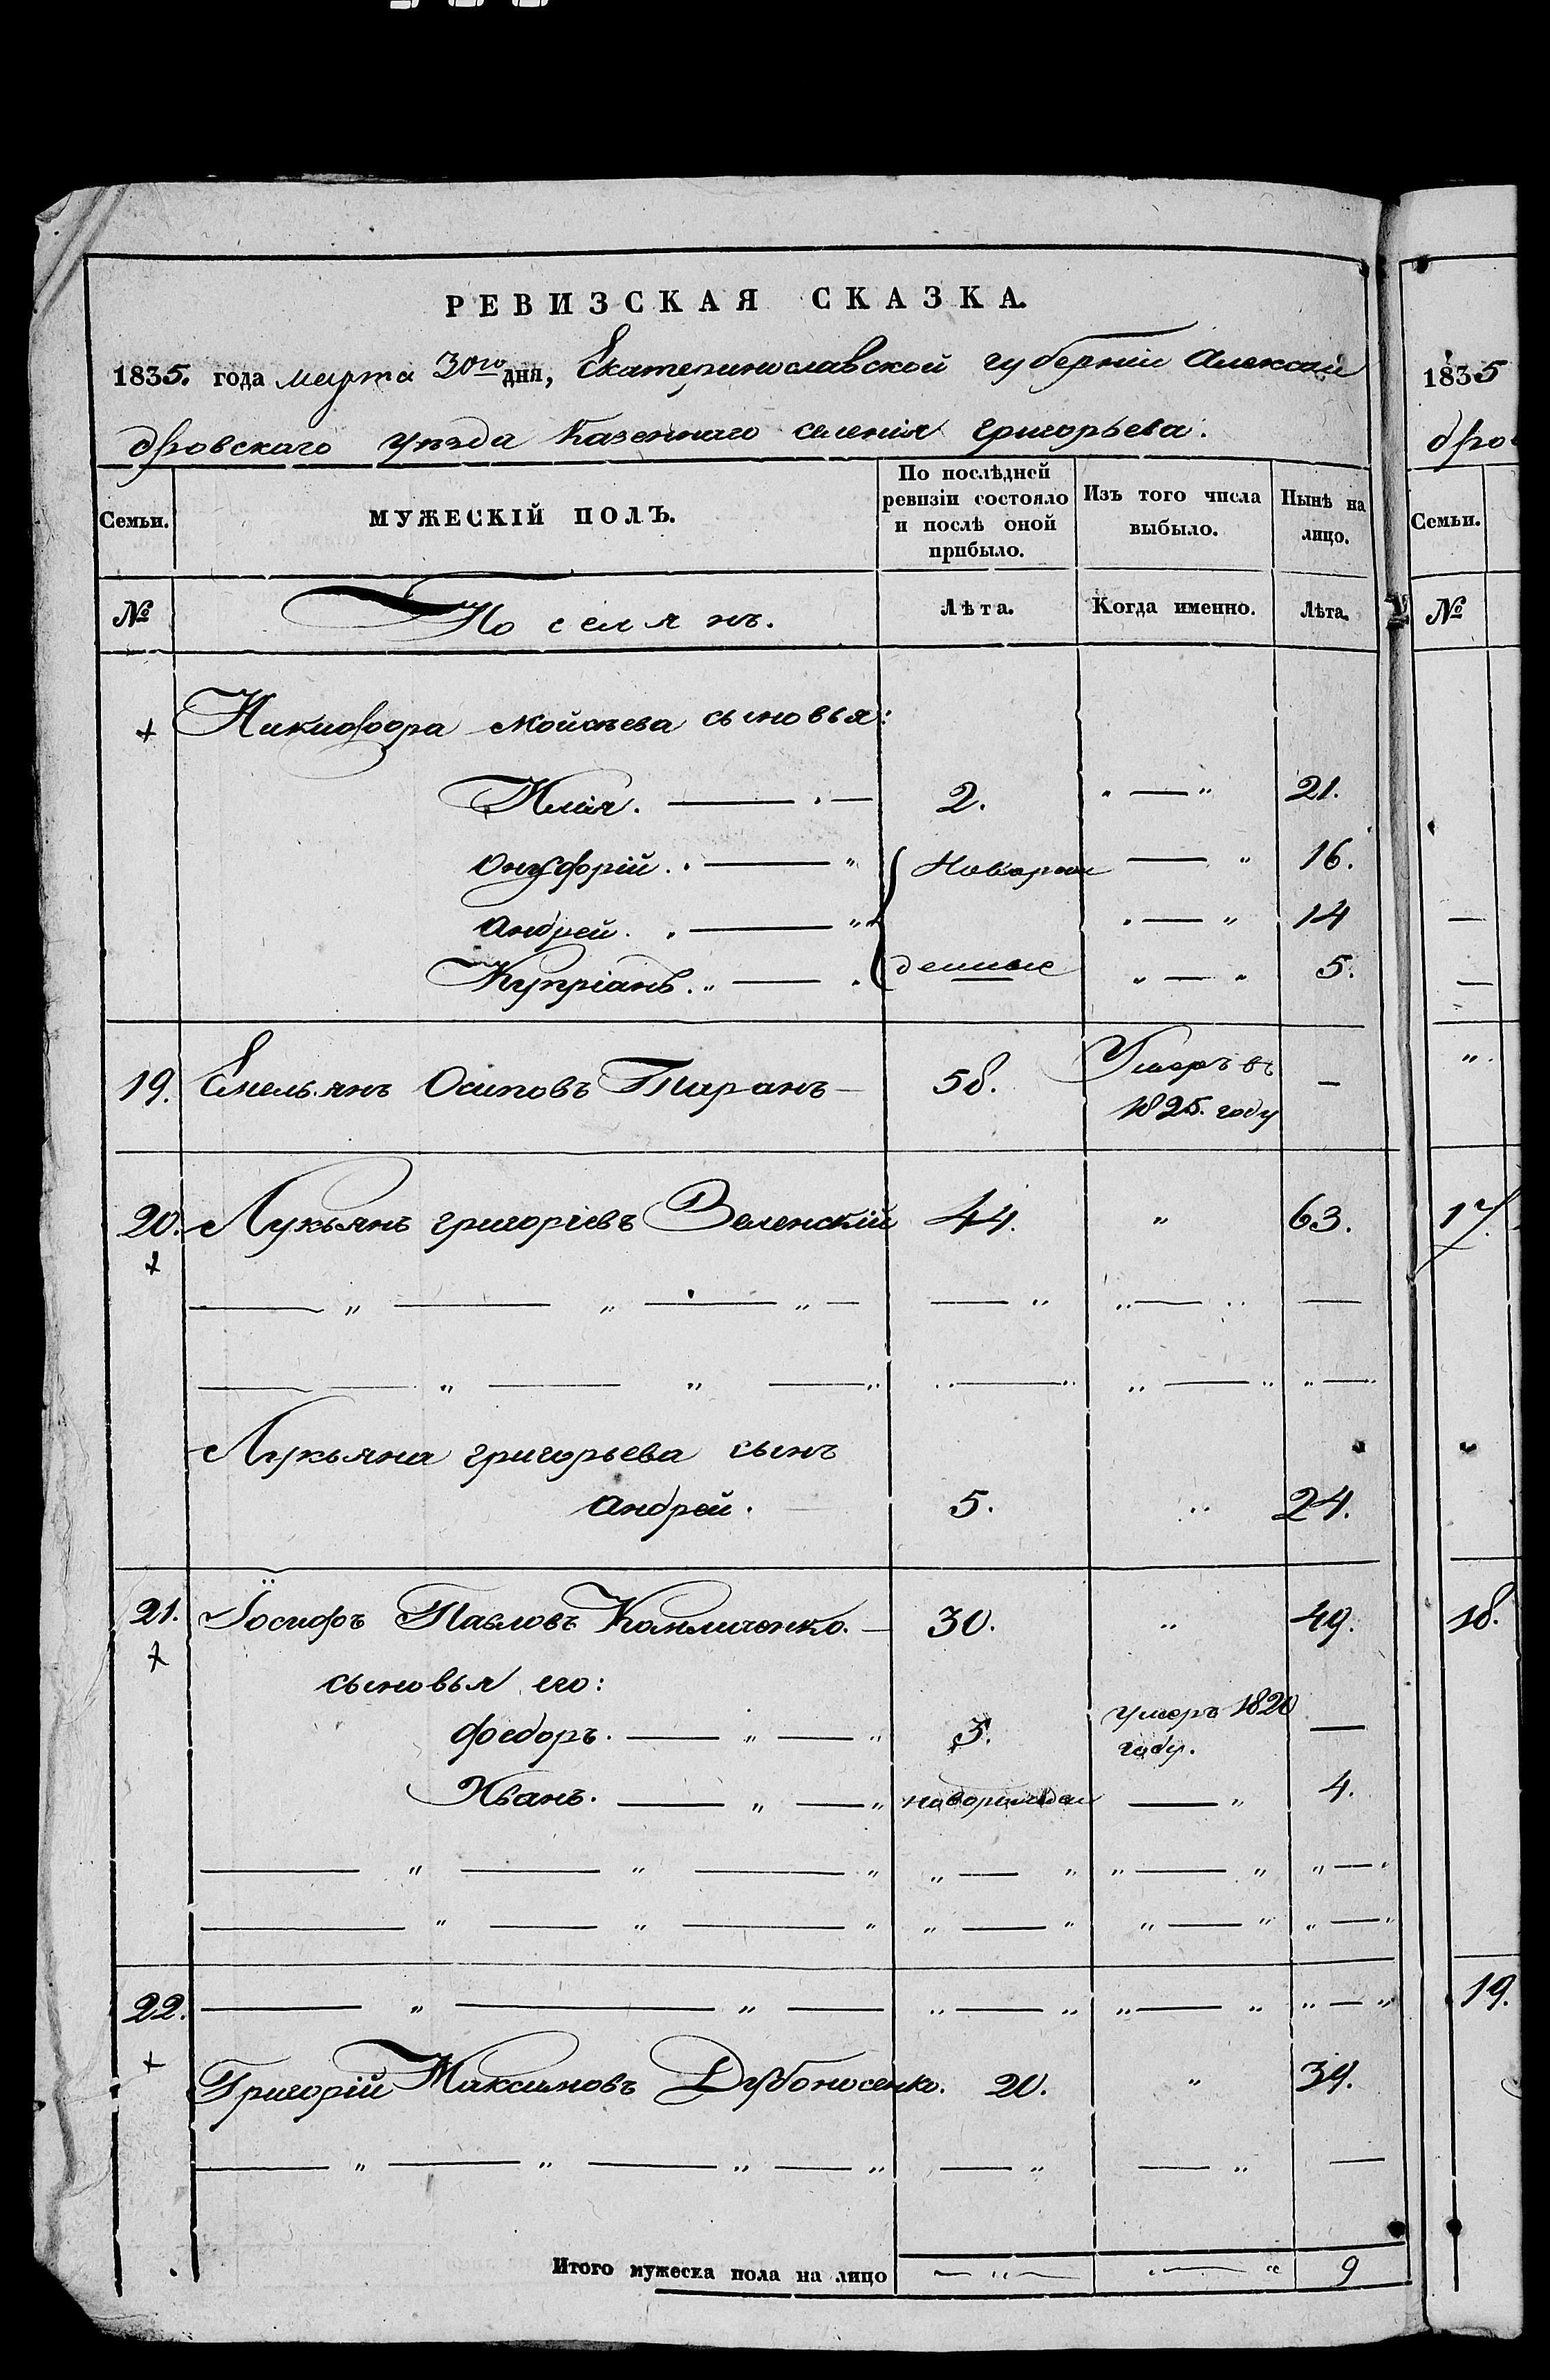 РЕВИЗСКАЯ СКАЗКА.
1835. года марта 30го дня, Екатеринославской губерніи Алексан
дровскаго уѣзда Казеннаго селенія Григорьева.
Семьи. МУЖЕСКІЙ ПОЛЪ. По послѣдней ревизіи состояло и послѣ оной прибыло. Изъ того числа выбыло. Нынѣ на лицо.
№ Поселянъ. Лѣта. Когда именно. Лѣта.
+ Никифора Мойсѣева сыновья:
Илія. — 2. " — " 21.
Онуфрій. — " Новорож — " 16.
Андрей. — " " — " 14
Купріанъ. — денные " — " 5.
19. Емельянъ Осиповъ Таранъ — 58. Умеръ въ —
1825. году
20. Лукьянъ Григоріевъ Зеленскій 44. " 63.
+
Лукьяна Григорьева сынъ
Андрей. 5. " 24.
21. Іосифъ Павловъ — 30. " 49.
+
сыновья его:
Федоръ. — " — " 5. умеръ 1820 —
году.
Иванъ. — " — " новорожден — " 4.
22. — " — " — " — " " — " " — "
+
Григорій Максимовъ Дубоносенко. 20. " 39.
Итого мужеска пола на лицо — " — — " 9
1835
дро
Семьи.
№
17.
18.
19.